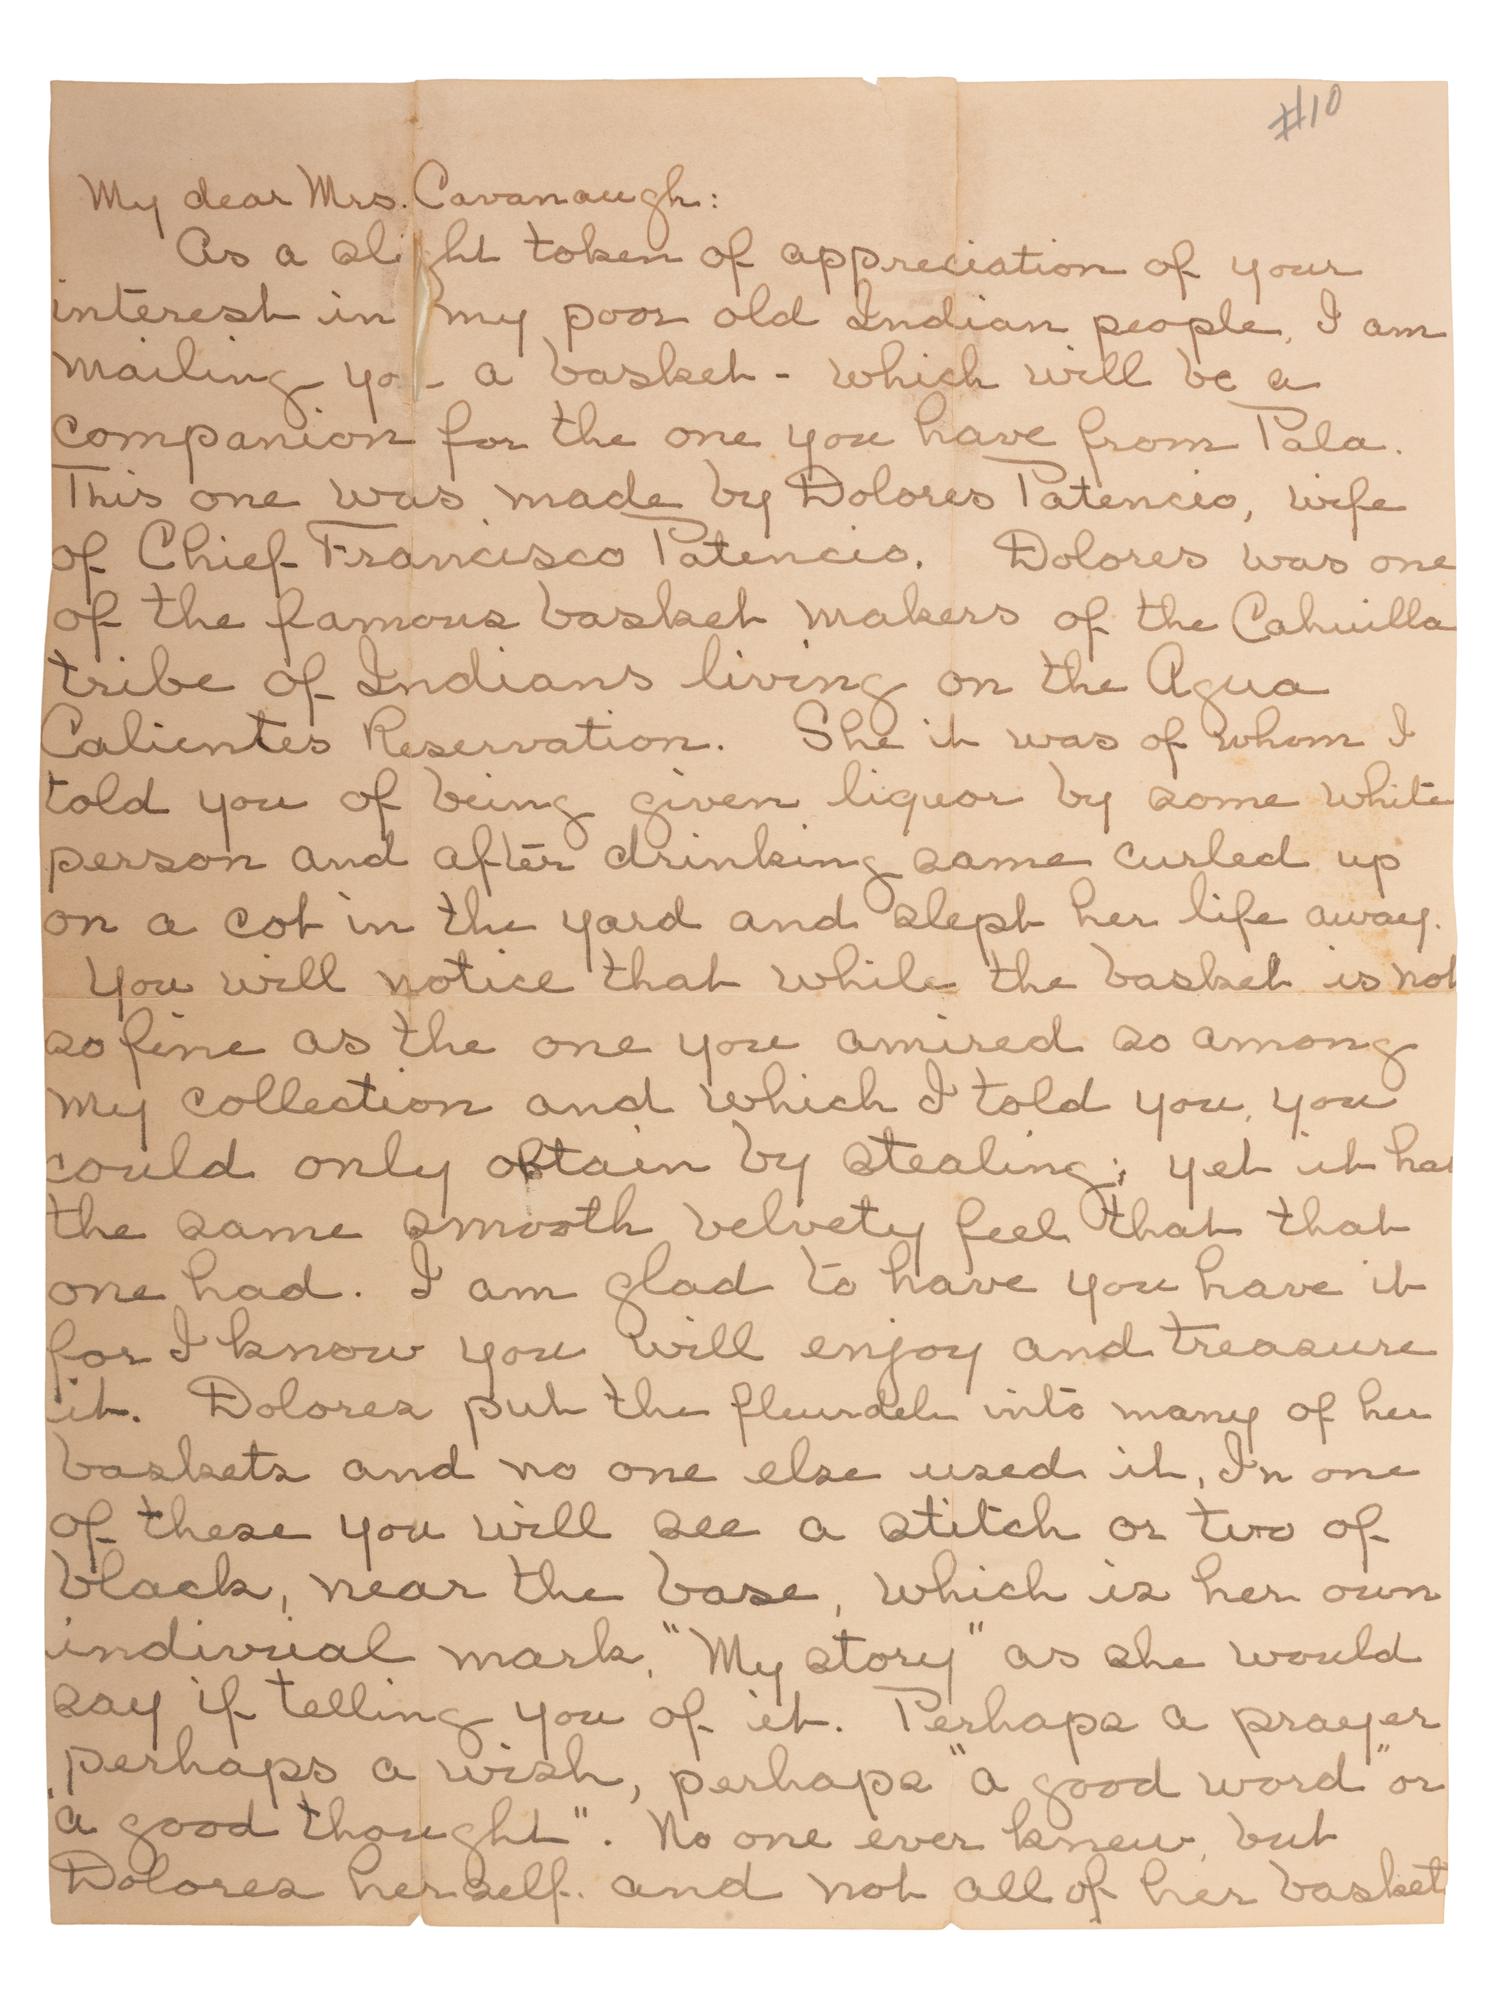 #10
My dear Mrs. Cavanaugh:
As a slight token of appreciation of your
interest in my poor old Indian people, I am
mailing yo - a basket - which will be a
companion for the one you have from Pala.
This one was made by Dolores Patencio, wife
of Chief Francisco Patencio. Dolores was one
of the famous basket makers of the Cahuilla
tribe of Indians living on the Agua
Calientes Reservation. She it was of whom I
told you of being given liquor by some white
person and after drinking same curled up
on a cot in the yard and slept her life away.
You will notice that while the basket is not
so fine as the one you amired so among
my collection and which I told you, you
could only obtain by stealing; yet it has
the same smooth velvety feel that that
one had. I am glad to have you have it
for I know you will enjoy and treasure
it. Dolores put the fleurdele into many of her
baskets and no one else used it, In one
of these you will see a stitch or two of
black, near the base, which is her own
indivuial mark, "My story" as she would
say if telling you of it. Perhaps a prayer
perhaps a wish, perhaps "a good word" or
"a good thought". No one ever knew, but
Dolores herself. and not all of her basket